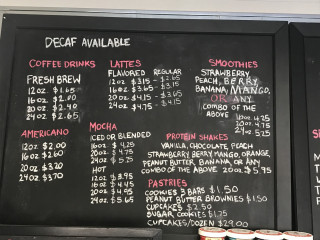 DECAF AVAILABLE
COFFEE DRINKS
FRESH BREW
12oz $1.65
16oz $2.00
20oz $2.40
24oz $2.65
AMERICANO
12oz $2.00
16oz $2.60
20oz $3.20
24oz $3.70
LATTES
FLAVORED REGULAR
12oz $3.15 - $2.65
16oz $3.65 - $3.15
20oz $4.15 - $3.65
24oz $4.75 - $4.15
MOCHA
ICED OR BLENDED
16oz $4.25
20oz $4.75
24oz $5.25
HOT
12oz $3.95
16oz $4.45
20oz $4.95
24oz $5.65
SMOOTHIES
STRAWBERRY
PEACH, BERRY
BANANA, MANGO,
OR ANY
COMBO OF THE
ABOVE
16oz 4.25
20oz 4.75
24oz 5.25
PROTEIN SHAKES
VANILLA, CHOCOLATE, PEACH
STRAWBERRY, BERRY, MANGO, ORANGE,
PEANUT BUTTER, BANANA, OR ANY
COMBO OF THE ABOVE 20oz $5.95
PASTRIES
COOKIES 3 BARS $1.50
PEANUT BUTTER BROWNIES $1.50
CUPCAKES $2.50
SUGAR COOKIES $1.75
CUPCAKES/DOZEN $29.00